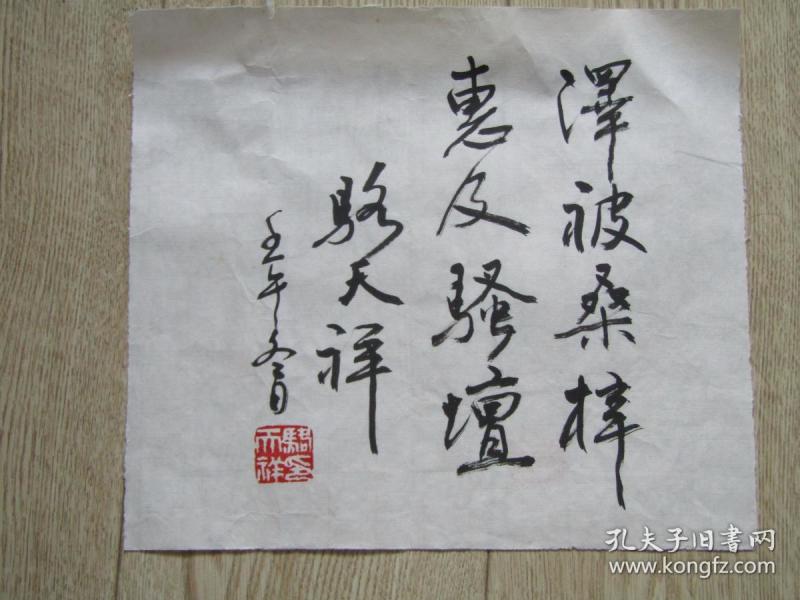 澤被桑梓
惠及騷壇
駱天祥
壬午冬月
駱天祥印
孔夫子旧書网
www.kongfz.com